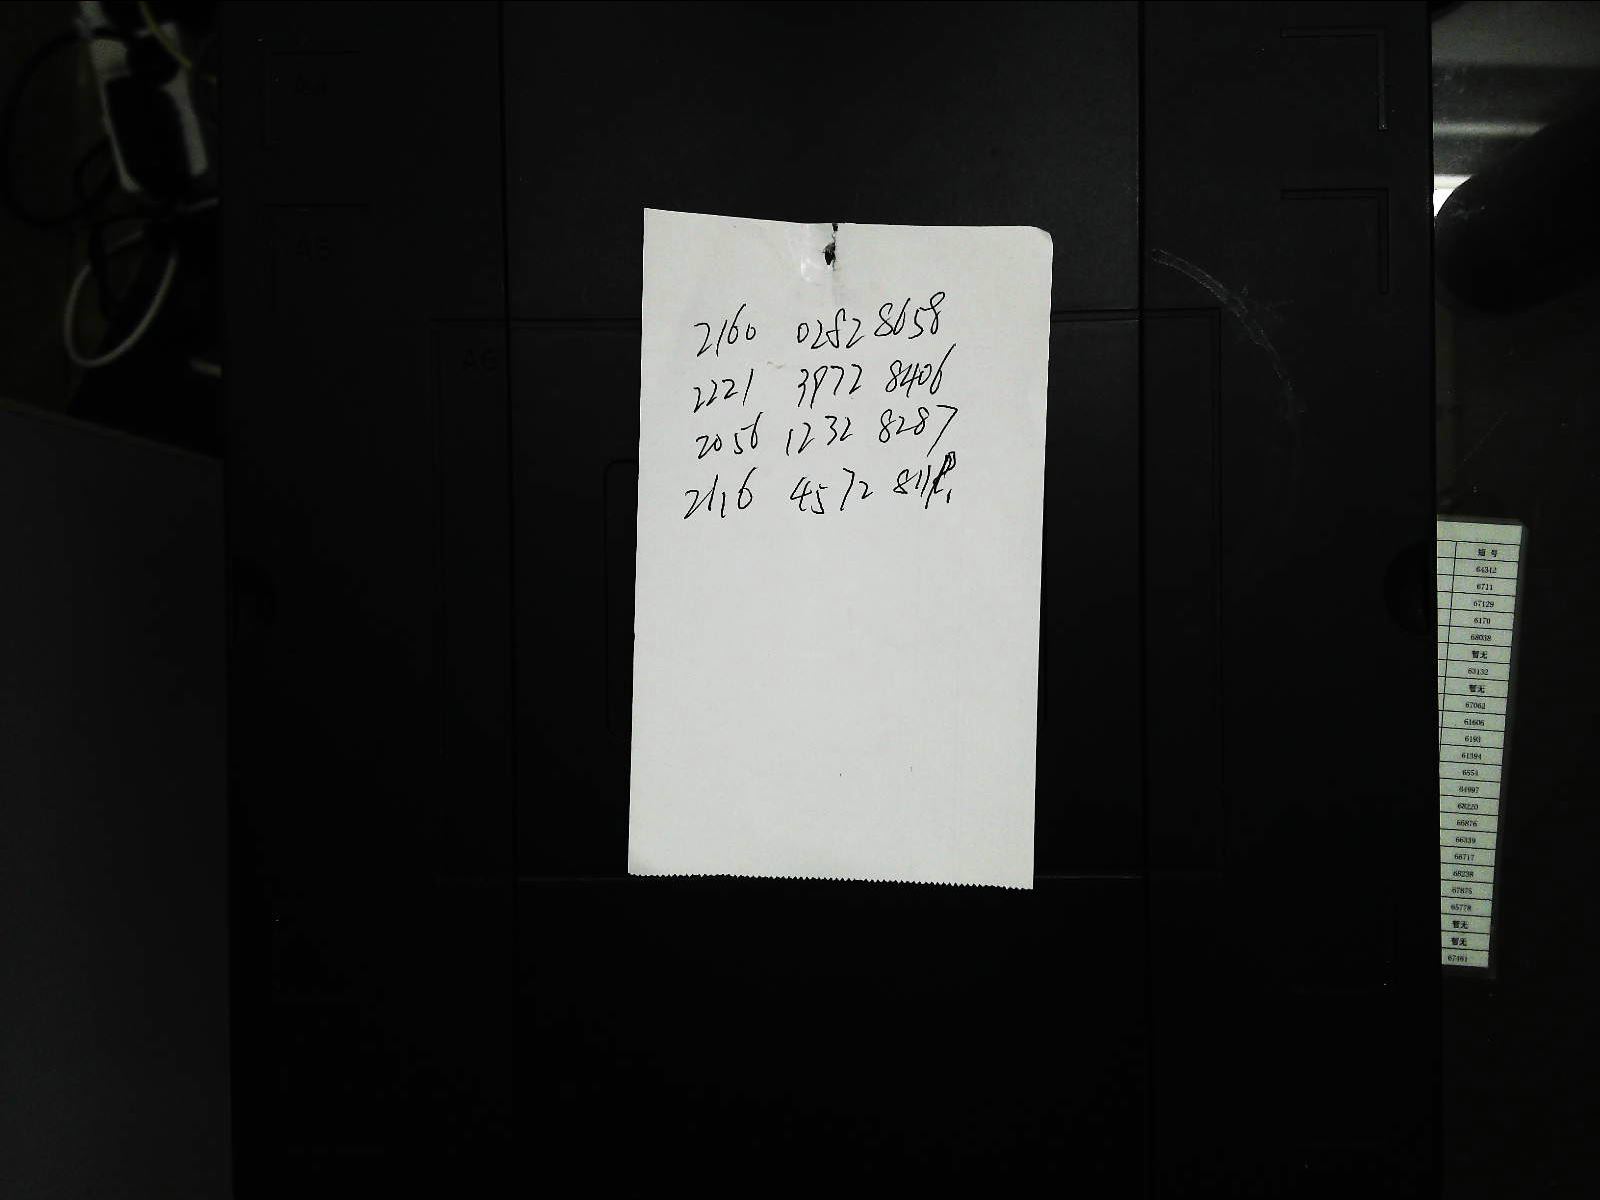 A5
A6
2160 0282 8658
2221 3972 8406
2056 1232 8287
2116 4572
短号
64312
6711
67129
6170
68038
暂无
63132
暂无
67062
61606
6193
61394
6554
64997
68220
66876
66339
68717
68238
67875
65778
暂无
暂无
67461